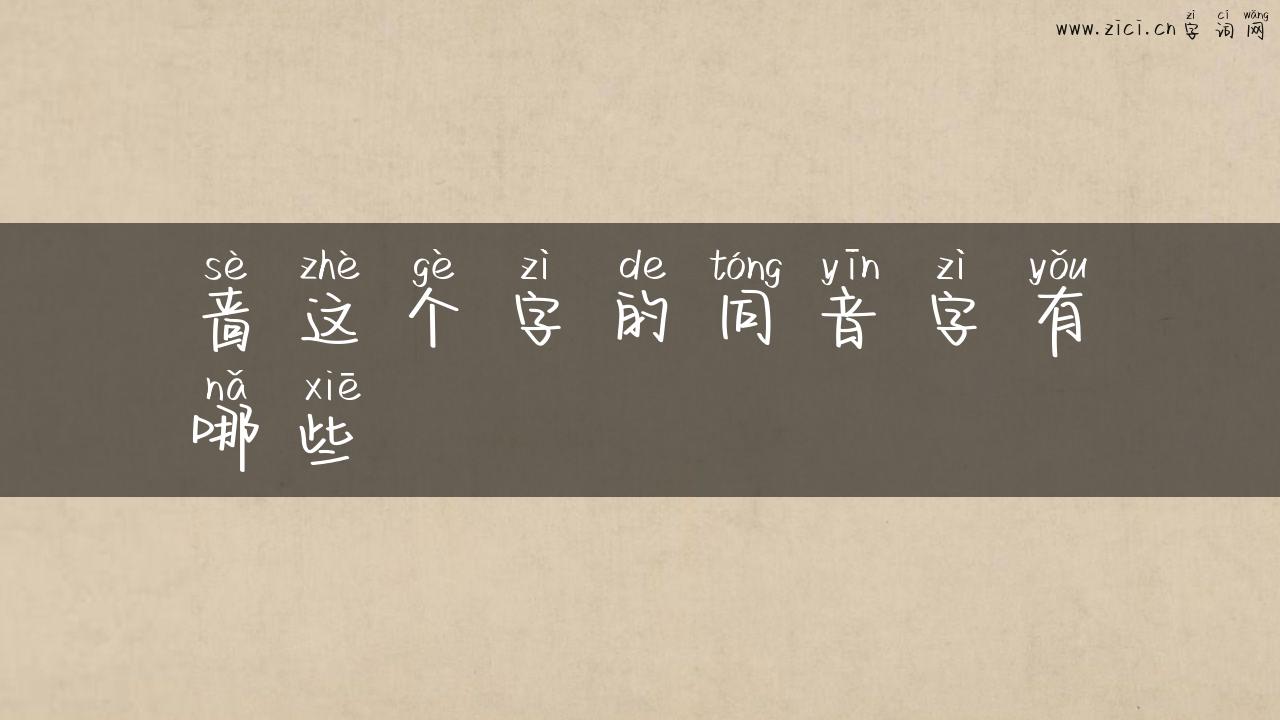 zì cí wǎng
www.zici.cn 字词网
sè zhè gè zì de tóng yīn zì yǒu
啬这个字的同音字有
nǎ xiē
哪些